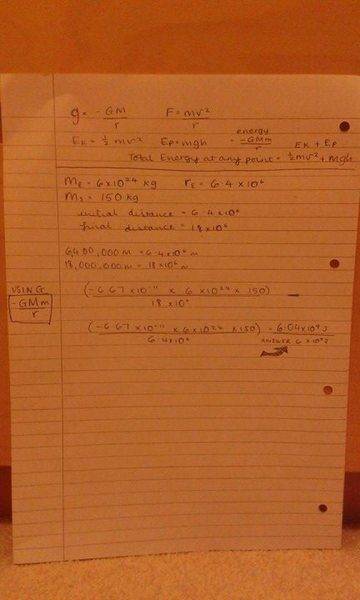 g = -GM/r F = mv²/r
energy
Ek = ½mv² Ep = mgh = -GMm/r Ek + Ep
Total Energy at any point = ½mv² + mgh
ME = 6×10²⁴ kg rE = 6.4×10⁶
MS = 150 kg
initial distance = 6.4×10⁶
final distance = 18×10⁶
6400,000 m = 6.4×10⁶ m
18,000,000m = 18×10⁶ m
USING (-6.67×10⁻¹¹ × 6×10²⁴ × 150)/18×10⁶ -
-GMm/r
(-6.67×10⁻¹¹ × 6×10²⁴ × 150)/6.4×10⁶ = 6.04×10⁹J
ANSWER 6×10⁹J